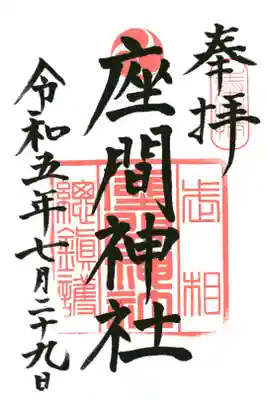 奉拝
座間神社
令和五年七月二十九日
相武
座間神社
総鎮護